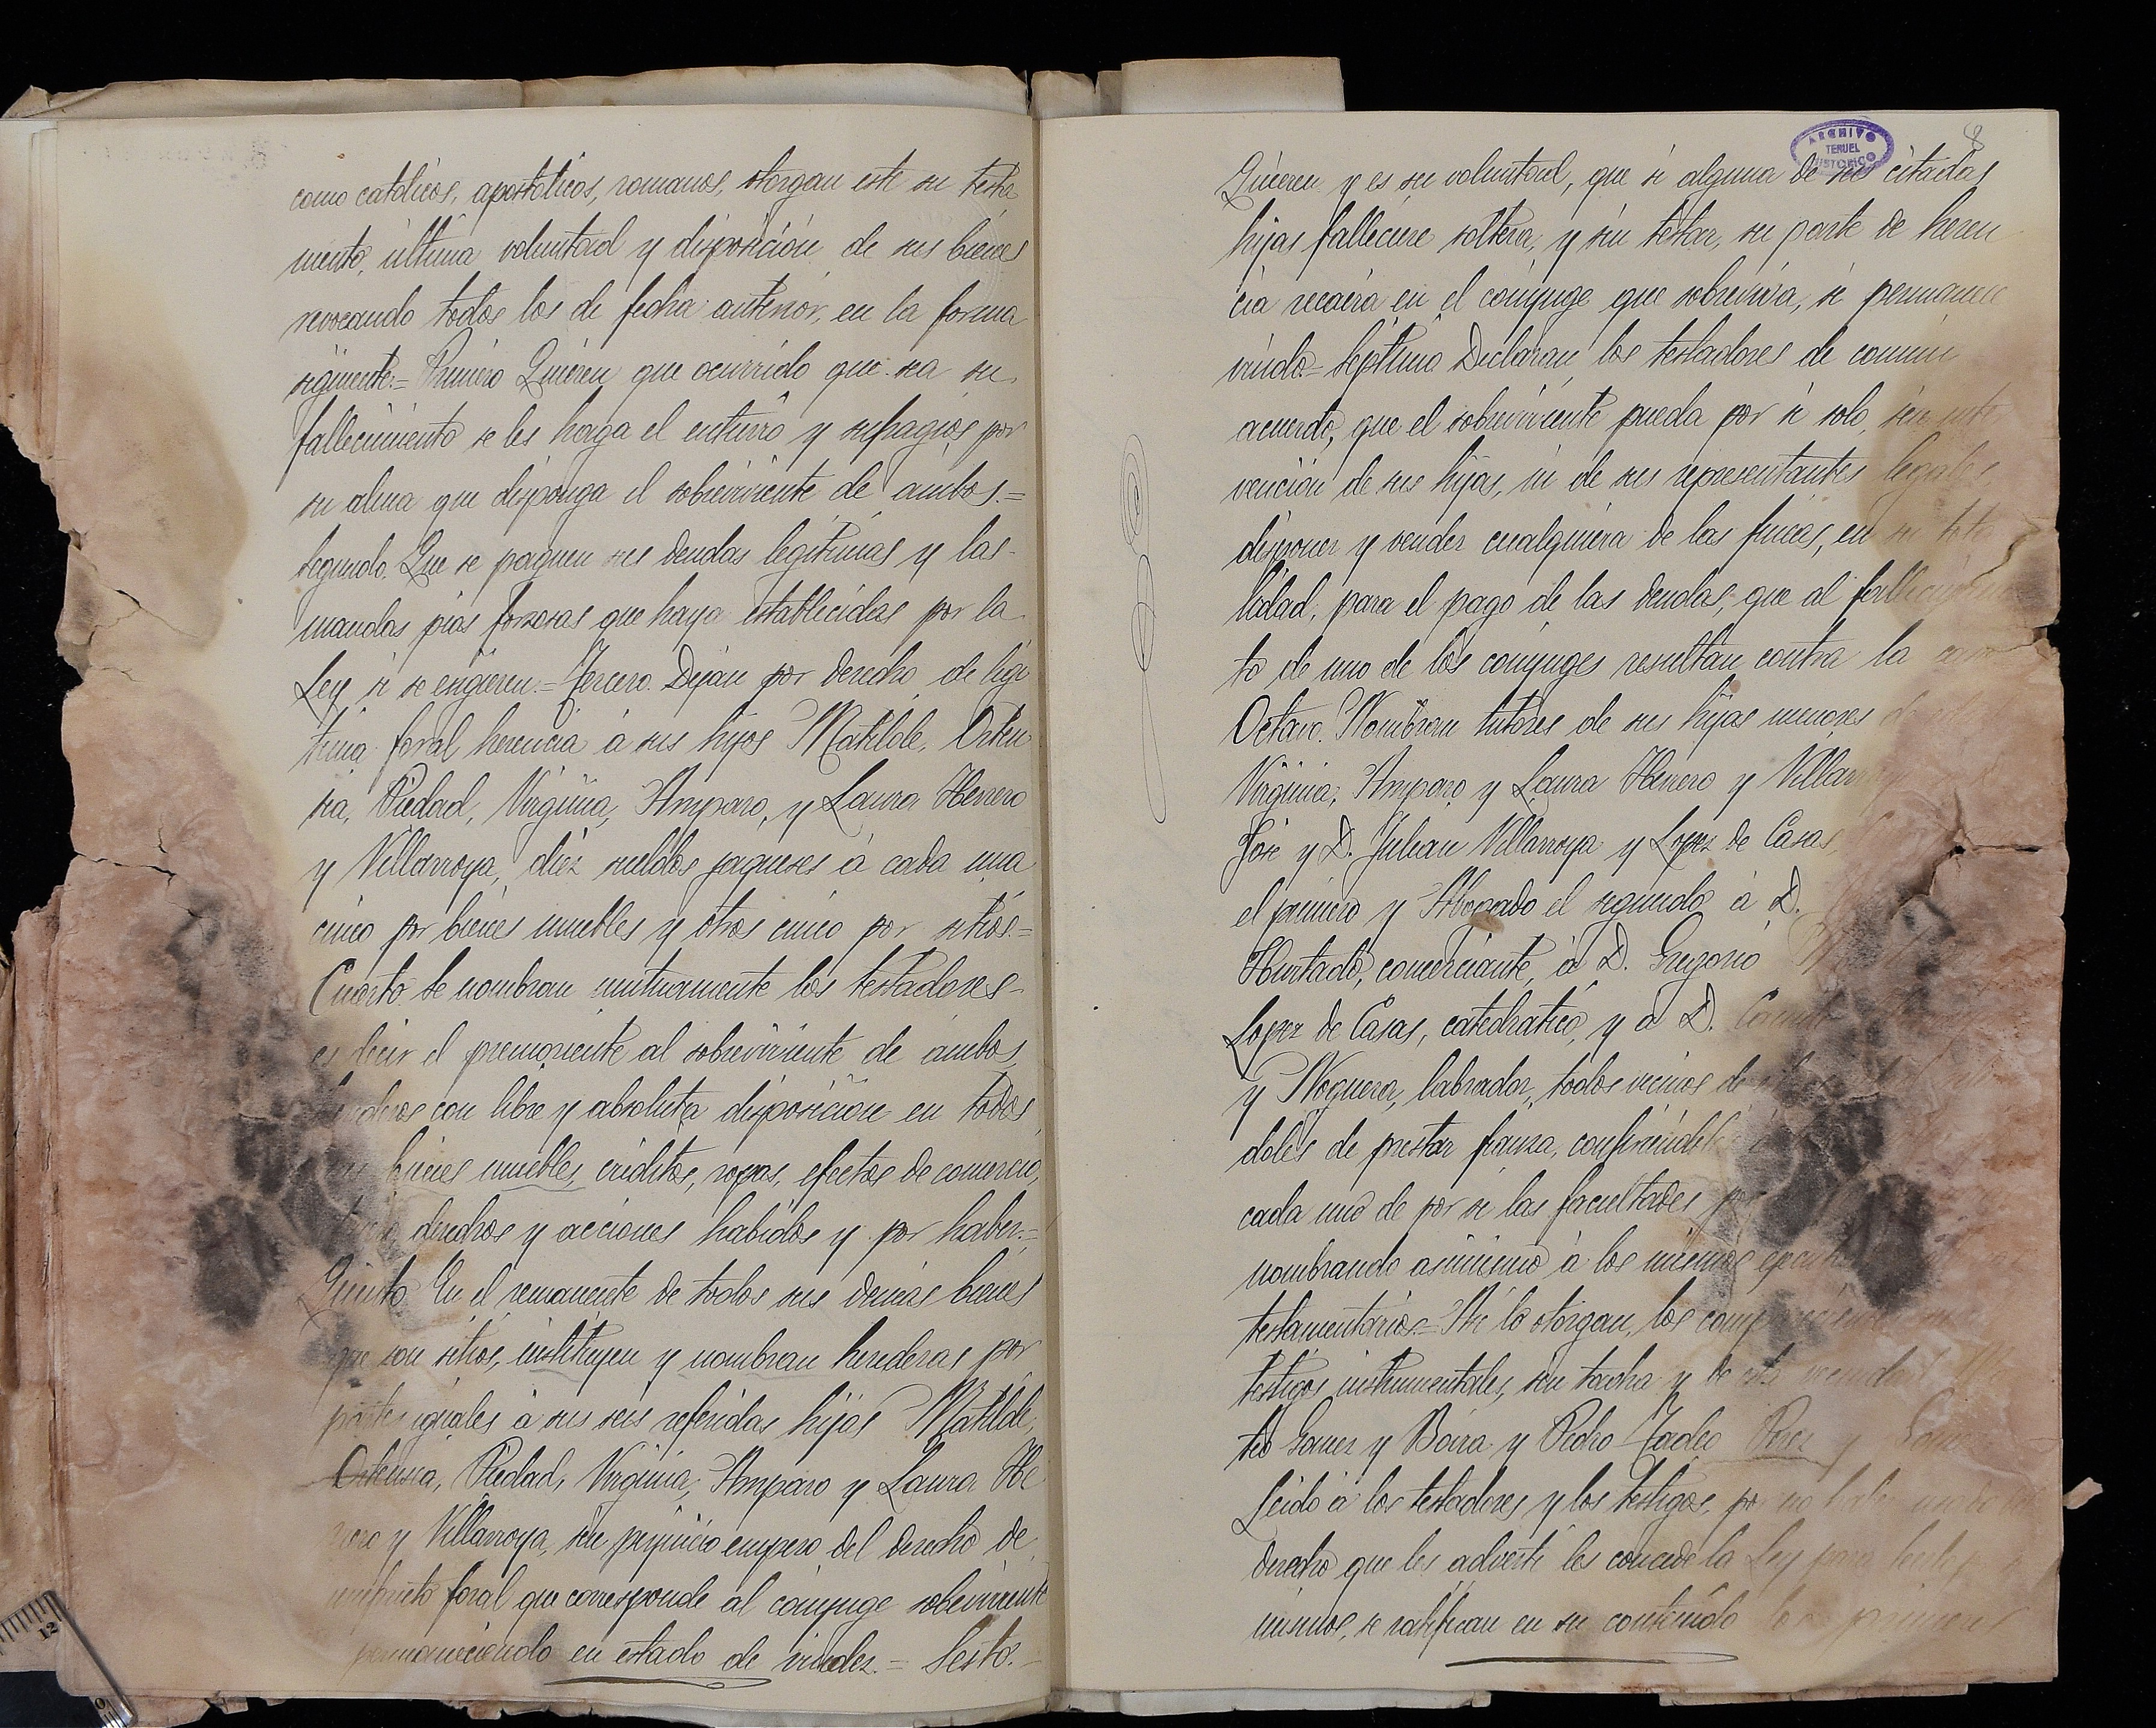 como católicos, apostólicos, romanos, otorgan este su testa
mento, última voluntad y disposición de sus bienes
revocando todos los de fecha anterior, en la forma
siguiente:= Primero Quieren que ocurrido que sea su
fallecimiento se les haga el entierro y sufragios por
su alma que disponga el sobreviviente de ambos.=
Segundo. Que se paguen sus deudas legítimas y las
mandas pías forzosas que haya establecidas por la
Ley si se exigieren.= Tercero. Dejan por derecho de legí
tima foral herencia á sus hijos Matilde, Orten
sia, Piedad, Virginia, Amparo, y Laura Herrero
y Villarroya, diez sueldos jaqueses á cada una
cinco por bienes muebles y otros cinco por sitios.=
Cuarto. Se nombran mutuamente los testadores
es decir el premoriente al sobreviviente de ambos,
con libre y absoluta disposición en todos
bienes muebles, créditos, ropas, efectos de comercio,
derechos y acciones habidos y por haber.=
Quinto. En el remanente de todos sus demás bienes
que son sitios, instituyen y nombran herederas por
partes iguales á sus seis referidas hijas Matilde,
Ortensia, Piedad, Virginia, Amparo y Laura He
rrero y Villarroya, sin perjuicio empero del derecho de
usufructo foral que corresponde al cónyuge sobreviviente
permaneciendo en estado de viudez.= Sesto.
8
ARCHIVO
TERUEL
HISTORICO
Quieren y es su voluntad, que si alguna de sus citadas
hijas falleciere soltera, y sin testar, su parte de heren
cia recaera en el cónyuge que sobreviva, si permanece
viudo.= Séptimo Declaran los testadores de común
acuerdo, que el sobreviviente pueda por si solo, sin inter
vención de sus hijas, ni de sus representantes legales,
disponer y vender cualquiera de las fincas, en su tota
lidad, para el pago de las deudas, que al fallecimien
to de uno de los cónyuges resultan contra la casa
Octavo. Nombran tutores de sus hijas menores
Virginia, Amparo y Laura Herrero y Villar
José y D. Julian Villarroya y Lopez de Casas,
el primero y Abogado el segundo, á D.
Hurtado, comerciante, á D. Gregorio
Lopez de Casas, catedrático, y á D.
y Noguera, labrador, todos vecinos de
doles de prestar fianza,
cada uno de por si las facultades
nombrando asimismo á los mismos
testamentarios.= Asi lo otorgan, los
testigos instrumentales, sin tacha y de esta vecindad
teo Gomez y Boira y Pedro Tadeo Perez y
Leido á los testadores y los testigos, por no
derecho que les advertí les concede la Ley para
mismos, se ratifican en su contenido los primeros